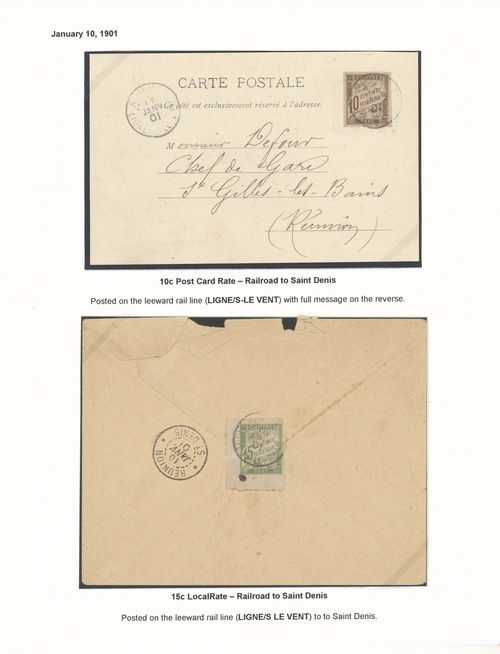 January 10, 1901
CARTE POSTALE
Ce côté est exclusivement réservé à l'adresse.
JANV
01
10
CENTIMES
A PERCEVOIR
TAXE
Monsieur Defour
Chef de Gare
St Gilles-les-Bains
(Réunion)
10c Post Card Rate – Railroad to Saint Denis
Posted on the leeward rail line (LIGNE/S-LE VENT) with full message on the reverse.
REUNION
10
JANV
01
ST DENIS
15
TAXE
15c LocalRate – Railroad to Saint Denis
Posted on the leeward rail line (LIGNE/S LE VENT) to to Saint Denis.